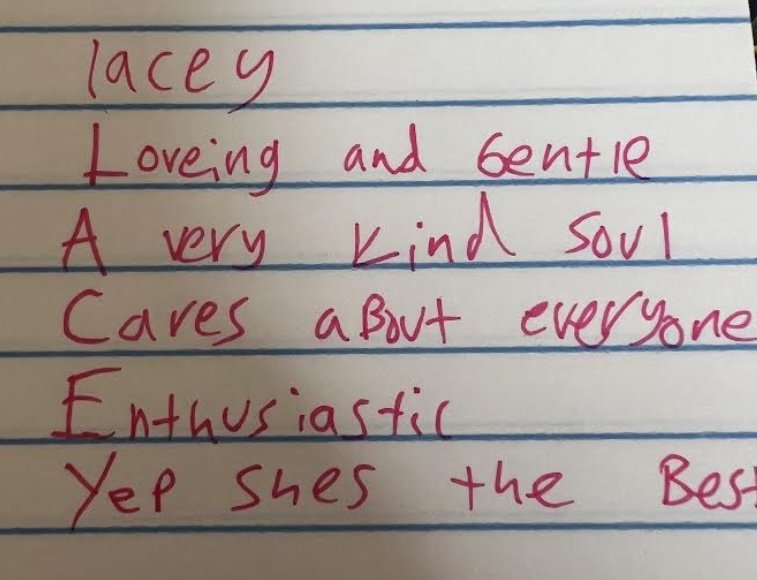 lacey
Loveing and Gentle
A very kind soul
Cares aBout everyone
Enthusiastic
Yep shes the Best